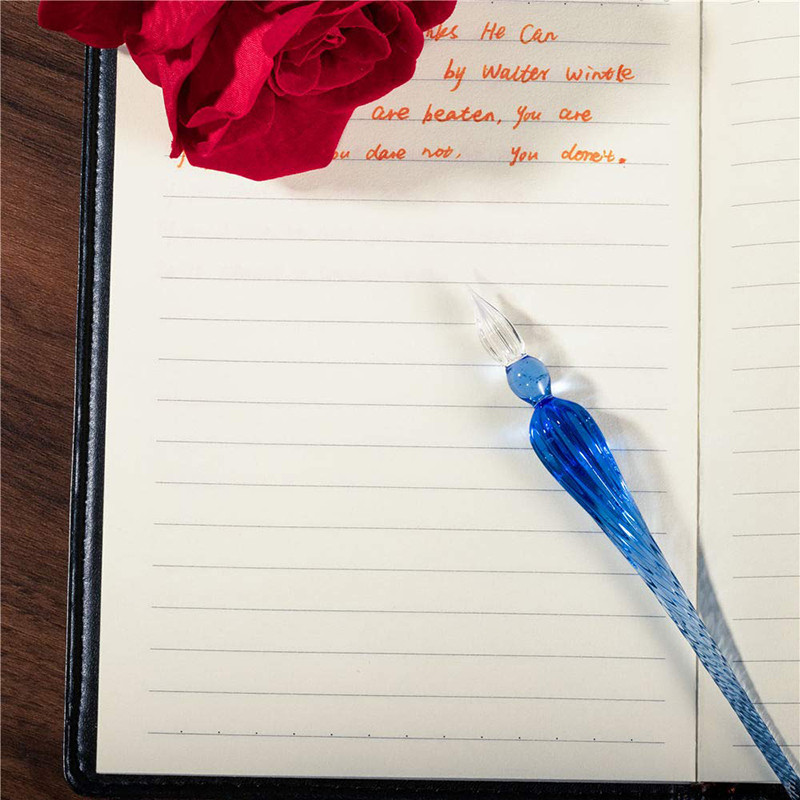 He Can
by Walter wintle
are beaten, you are
dare not, you don't.